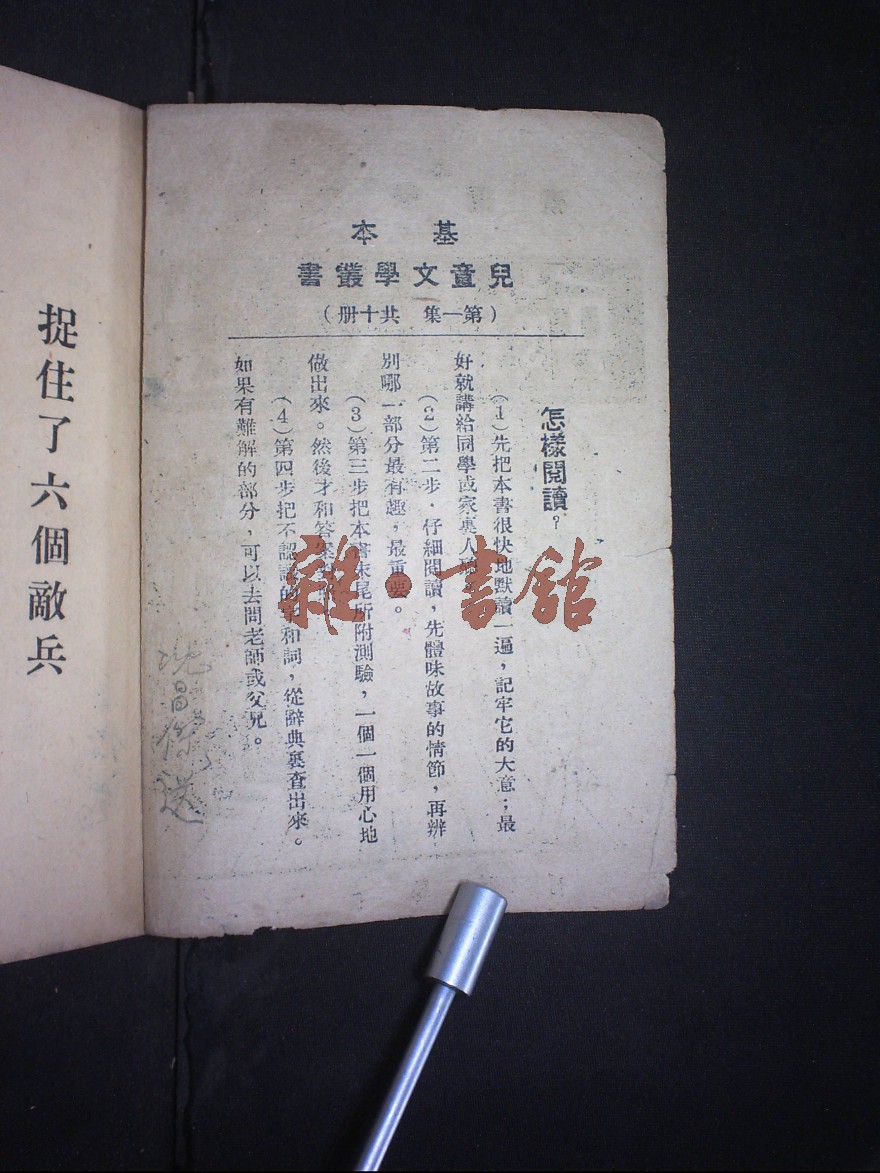 基本
兒童文學叢書
（第一集 共十册）
怎樣閱讀？
（1）先把本書很快地默讀一遍，記牢它的大意；最
好就講給同學或家裏人
（2）第二步，仔細閱讀，先體味故事的情節，再辨
別哪一部分最有趣，最重要。
（3）第三步把本書末尾所附測驗，一個一個用心地
做出來。然後才和答案
（4）第四步把不認識的字和詞，從辭典裏查出來。
如果有難解的部分，可以去問老師或父兄。
送
捉住了六個敵兵
雜·書館